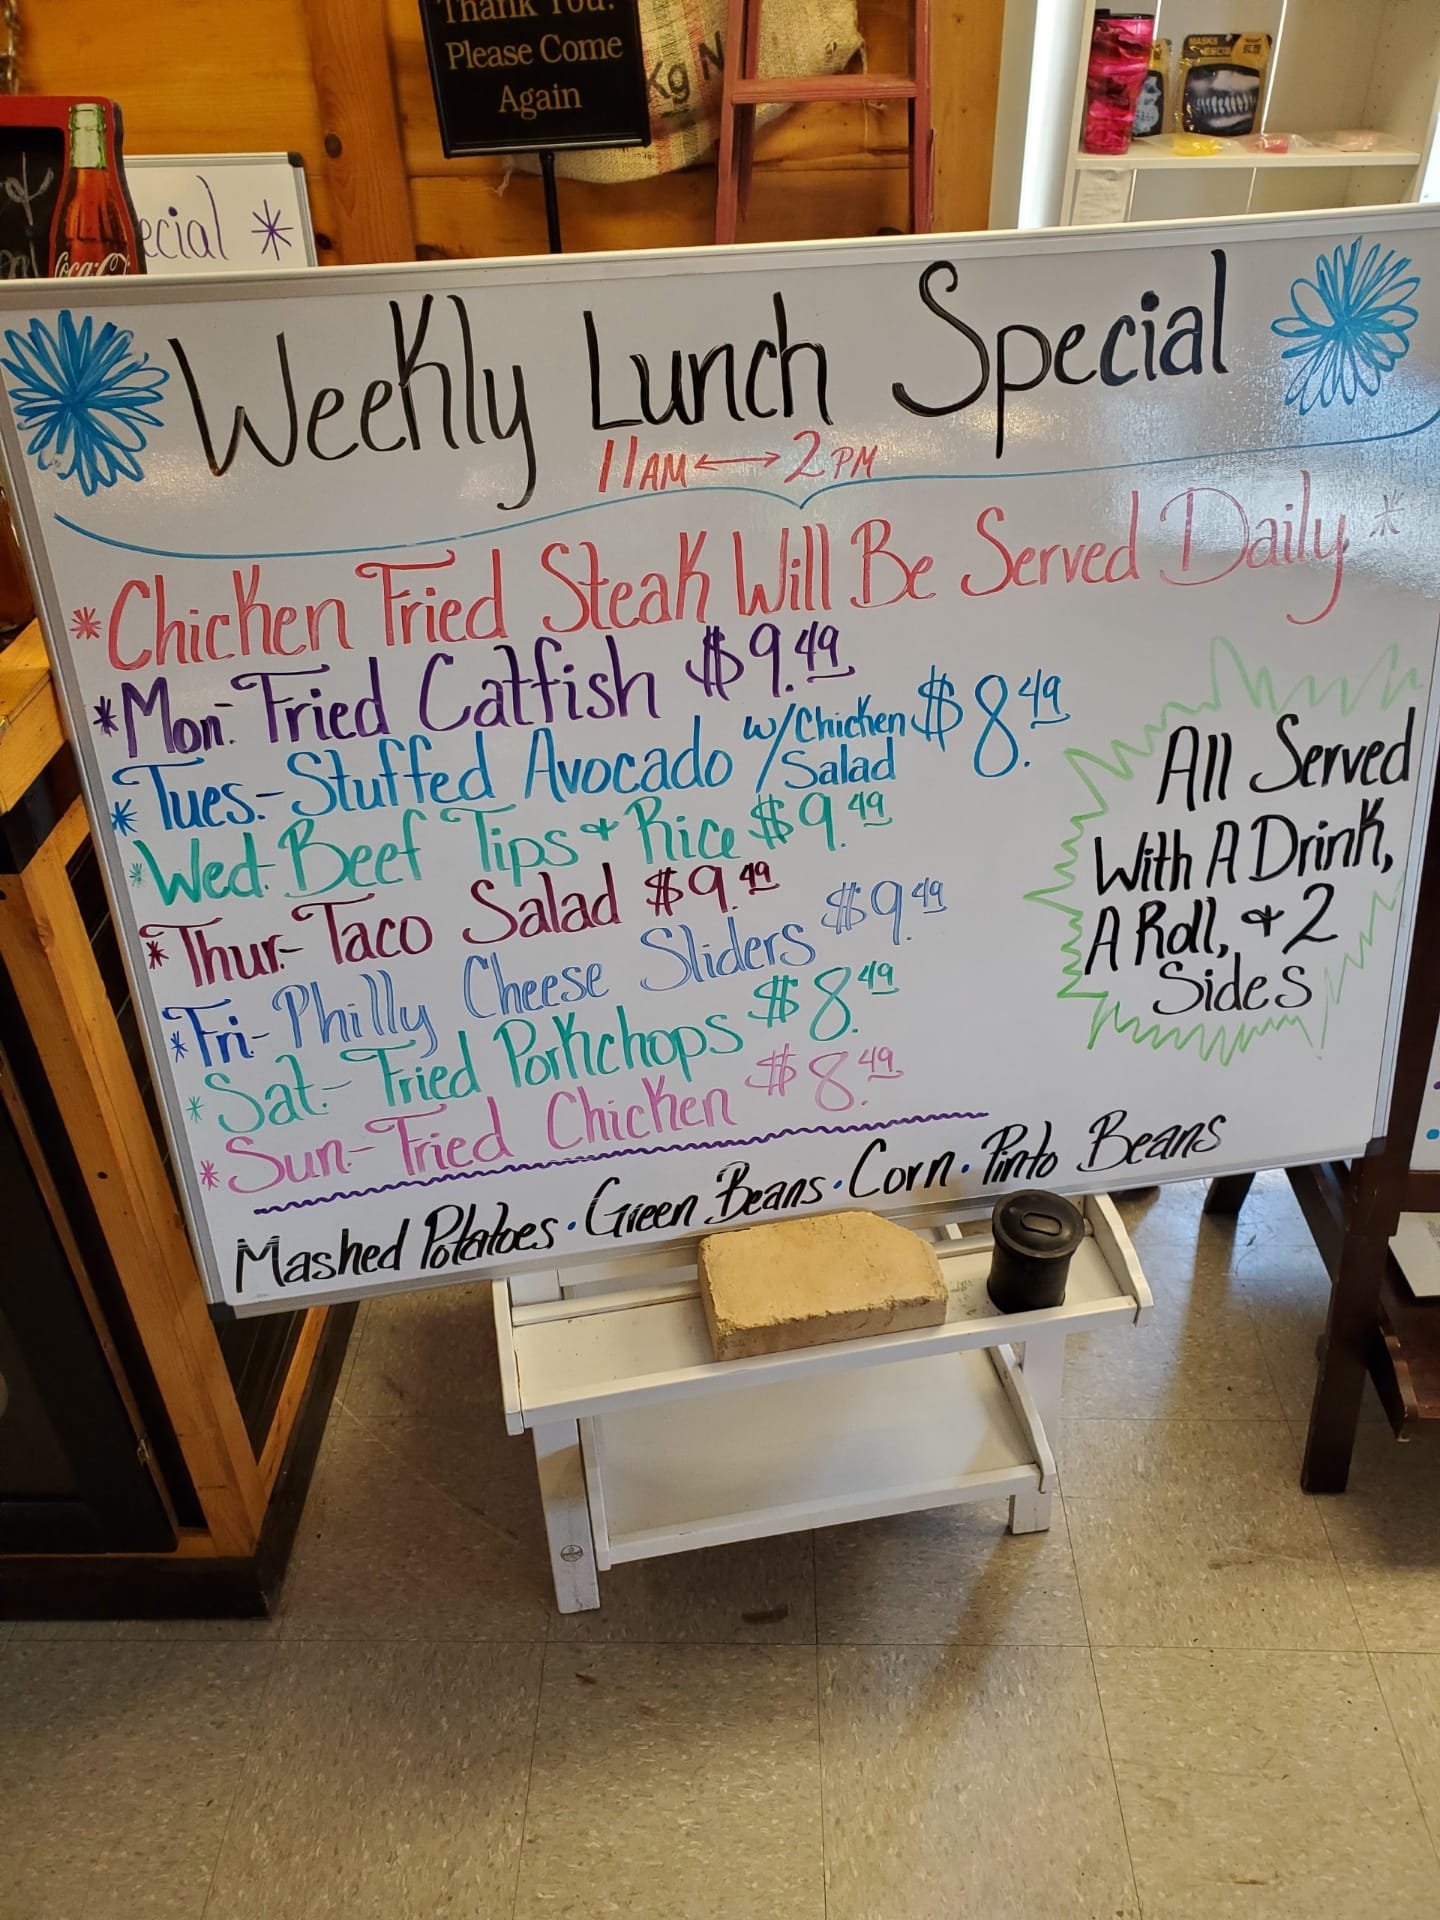 Thank You!
Please Come
Again
Kg N
MASKS
ecial *
Coca-Cola
Weekly Lunch Special
11AM ↔ 2PM
*Chicken Fried Steak Will Be Served Daily*
*Mon- Fried Catfish $9.49
*Tues.- Stuffed Avocado w/Chicken /Salad $8.49
*Wed- Beef Tips & Rice $9.49
*Thur- Taco Salad $9.49
*Fri- Philly Cheese Sliders $9.49
*Sat.- Fried Porkchops $8.49
*Sun- Fried Chicken $8.49
All Served
With A Drink,
A Roll, & 2
Sides
Mashed Potatoes · Green Beans · Corn · Pinto Beans